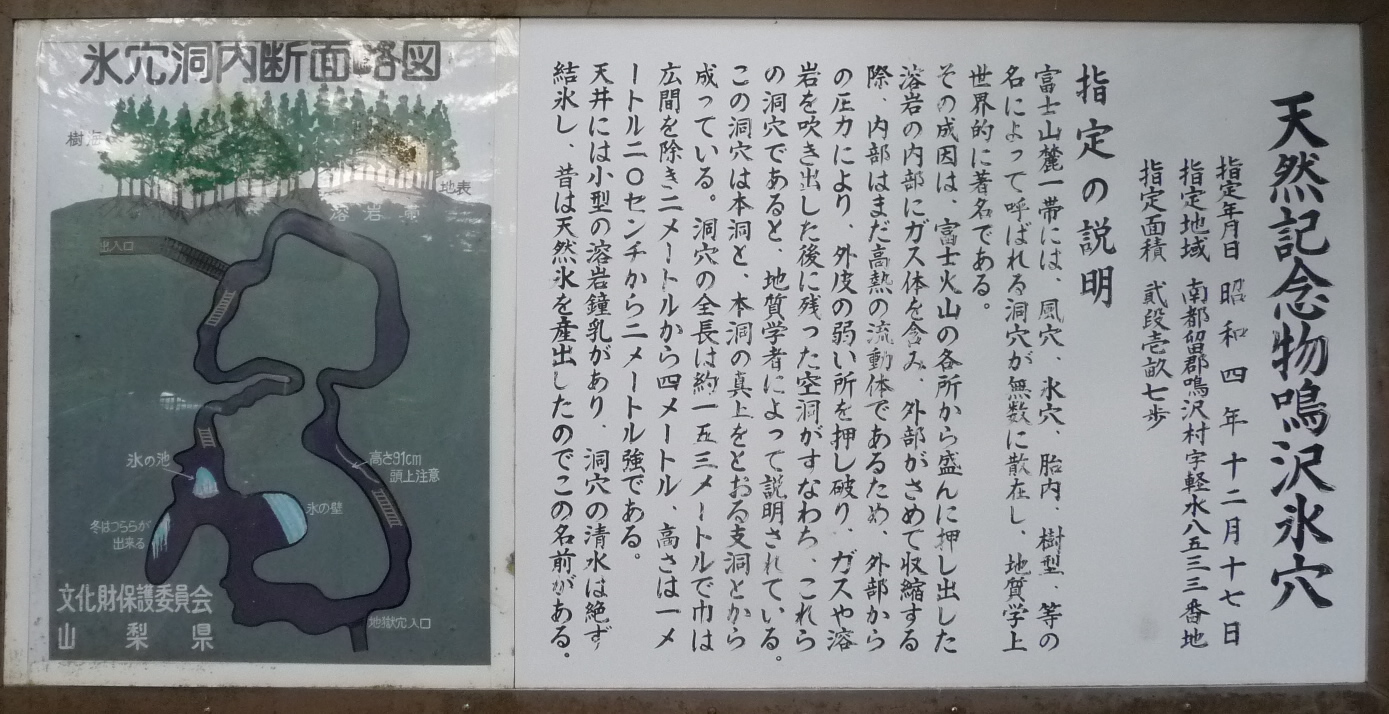 天然記念物鳴沢氷穴
指定年月日 昭和四年十二月十七日
指定地域 南都留郡鳴沢村字軽水八五三三番地
指定面積 貳段壱畝七歩
指定の説明
富士山麓一帯には、風穴、氷穴、胎内、樹型、等の
名によって呼ばれる洞穴が無数に散在し、地質学上
世界的に著名である。
その成因は、富士火山の各所から盛んに押し出した
溶岩の内部にガス体を含み、外部がさめて収縮する
際、内部はまだ高熱の流動体であるため、外部から
の圧力により、外皮の弱い所を押し破り、ガスや溶
岩を吹き出した後に残った空洞がすなわち、これら
の洞穴であると、地質学者によって説明されている。
この洞穴は本洞と、本洞の真上をとおる支洞とから
成っている。洞穴の全長は約一五三メートルで巾は
広間を除き二メートルから四メートル、高さは一メ
ートル二〇センチから二メートル強である。
天井には小型の溶岩鐘乳があり、洞穴の清水は絶ず
結氷し、昔は天然氷を産出したのでこの名前がある.
氷穴洞内断面略図
樹海
地表
溶岩
出入口
氷の池
高さ91cm
頭上注意
氷の壁
冬はつららが
出来る
地獄穴入口
文化財保護委員会
山梨県